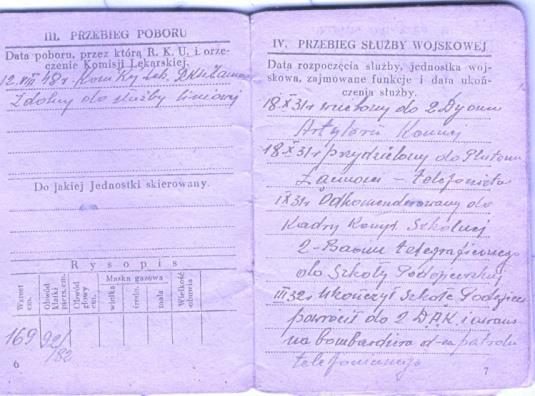 III. PRZEBIEG POBORU
Data poboru, przez którą R. K. U. i orze-
czenie Komisji Lekarskiej.
12.VIII 48 r. Kom. Lek.
Zdolny do służby liniowej
Do jakiej Jednostki skierowany.
Rysopis
Wzrost cm.
Obwód klatki piers. cm.
Obwód głowy cm.
Maska gazowa
wielka
średn.
mała
Wielkość obuwia
169 92/82
6
IV. PRZEBIEG SŁUŻBY WOJSKOWEJ
Data rozpoczęcia służby, jednostka woj-
skowa, zajmowane funkcje i data ukoń-
czenia służby.
18 X 31 r wcielony do 2 Dyonu
Artylerii Konnej
18 X 31 r przydzielony do Plutonu
Łączności – telefonista
Odkomenderowany do
Kadry Komp. Szkolnej
2 - Baonu telegraficznego
do Szkoły Podoficerskiej
III 32 r ukończył Szkołę
powrócił do 2 D.A.K. i
na bombardiera patrolu
telefonicznego
7